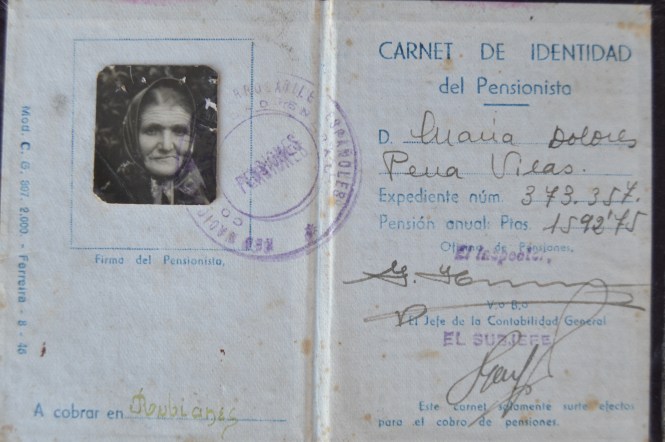 Mod. C. 6. 807. 2.000 - Ferreira - 8 - 46
Firma del Pensionista,
A cobrar en Rubianes
PENSIONES
CARNET DE IDENTIDAD
del Pensionista
D. Maria Dolores
Pena Vilas.
Expediente núm. 373.357.
Pensión anual: Ptas. 1592'75
Oficina de Pensiones,
El Inspector,
V.o B.o
El Jefe de la Contabilidad General
EL SUBJEFE
Este carnet solamente surte efectos
para el cobro de pensiones.